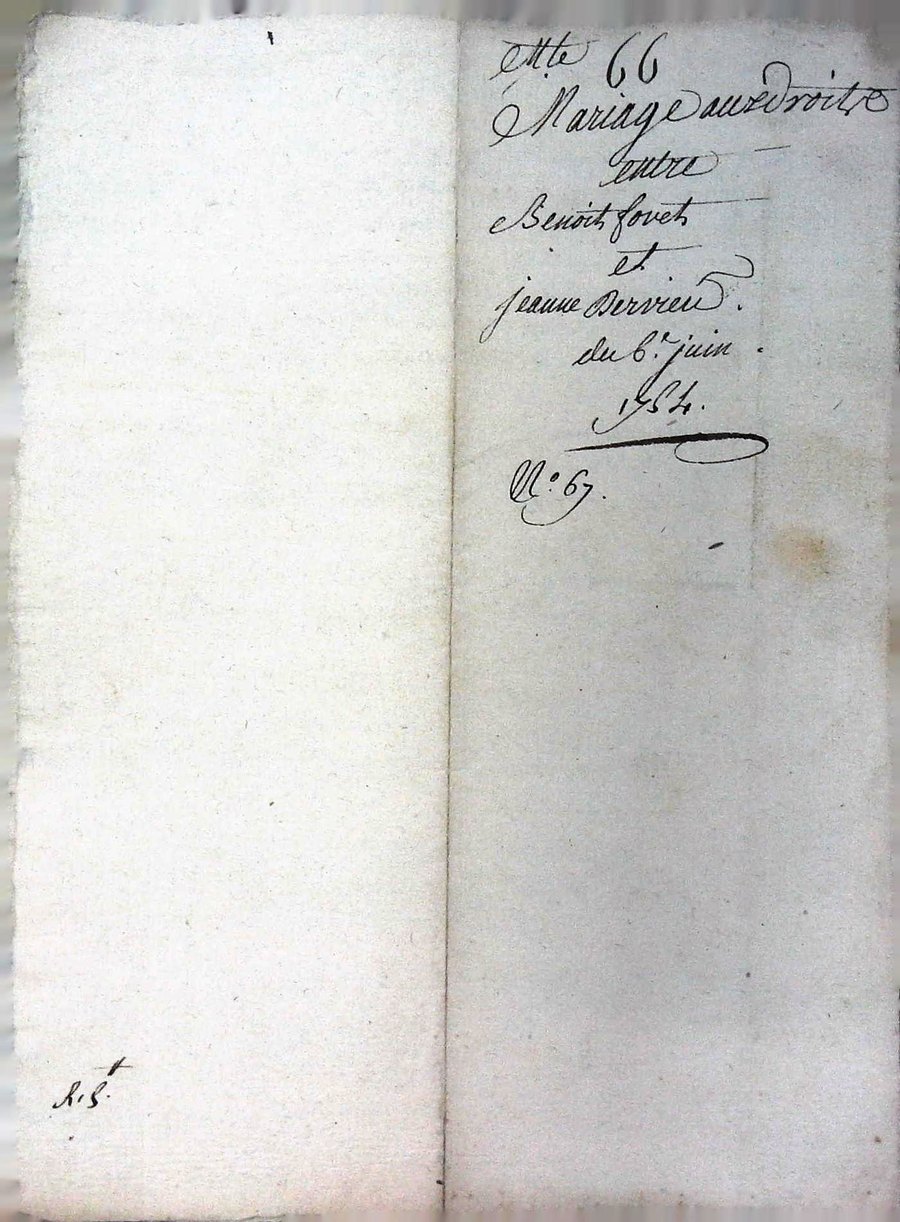 66
Mariage aux droits
entre
Benoit fovet
et
jeanne Dervieu.
du 6.e juin.
1754.
N.o 67.